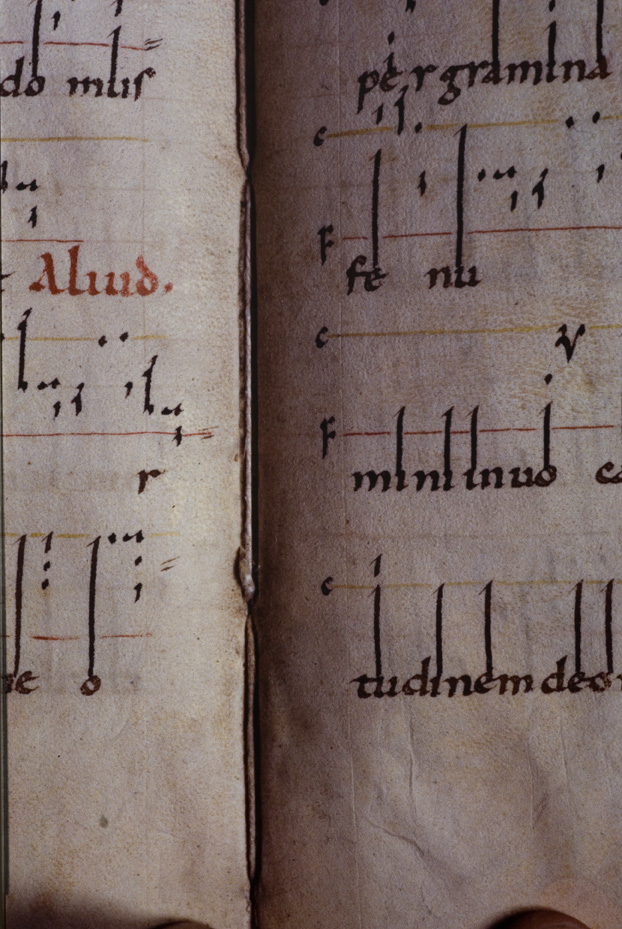 do mus
Aliud.
r
o
c
pergramina
c
F
fe nu
c
F
mini inuo
c
tudinem deo